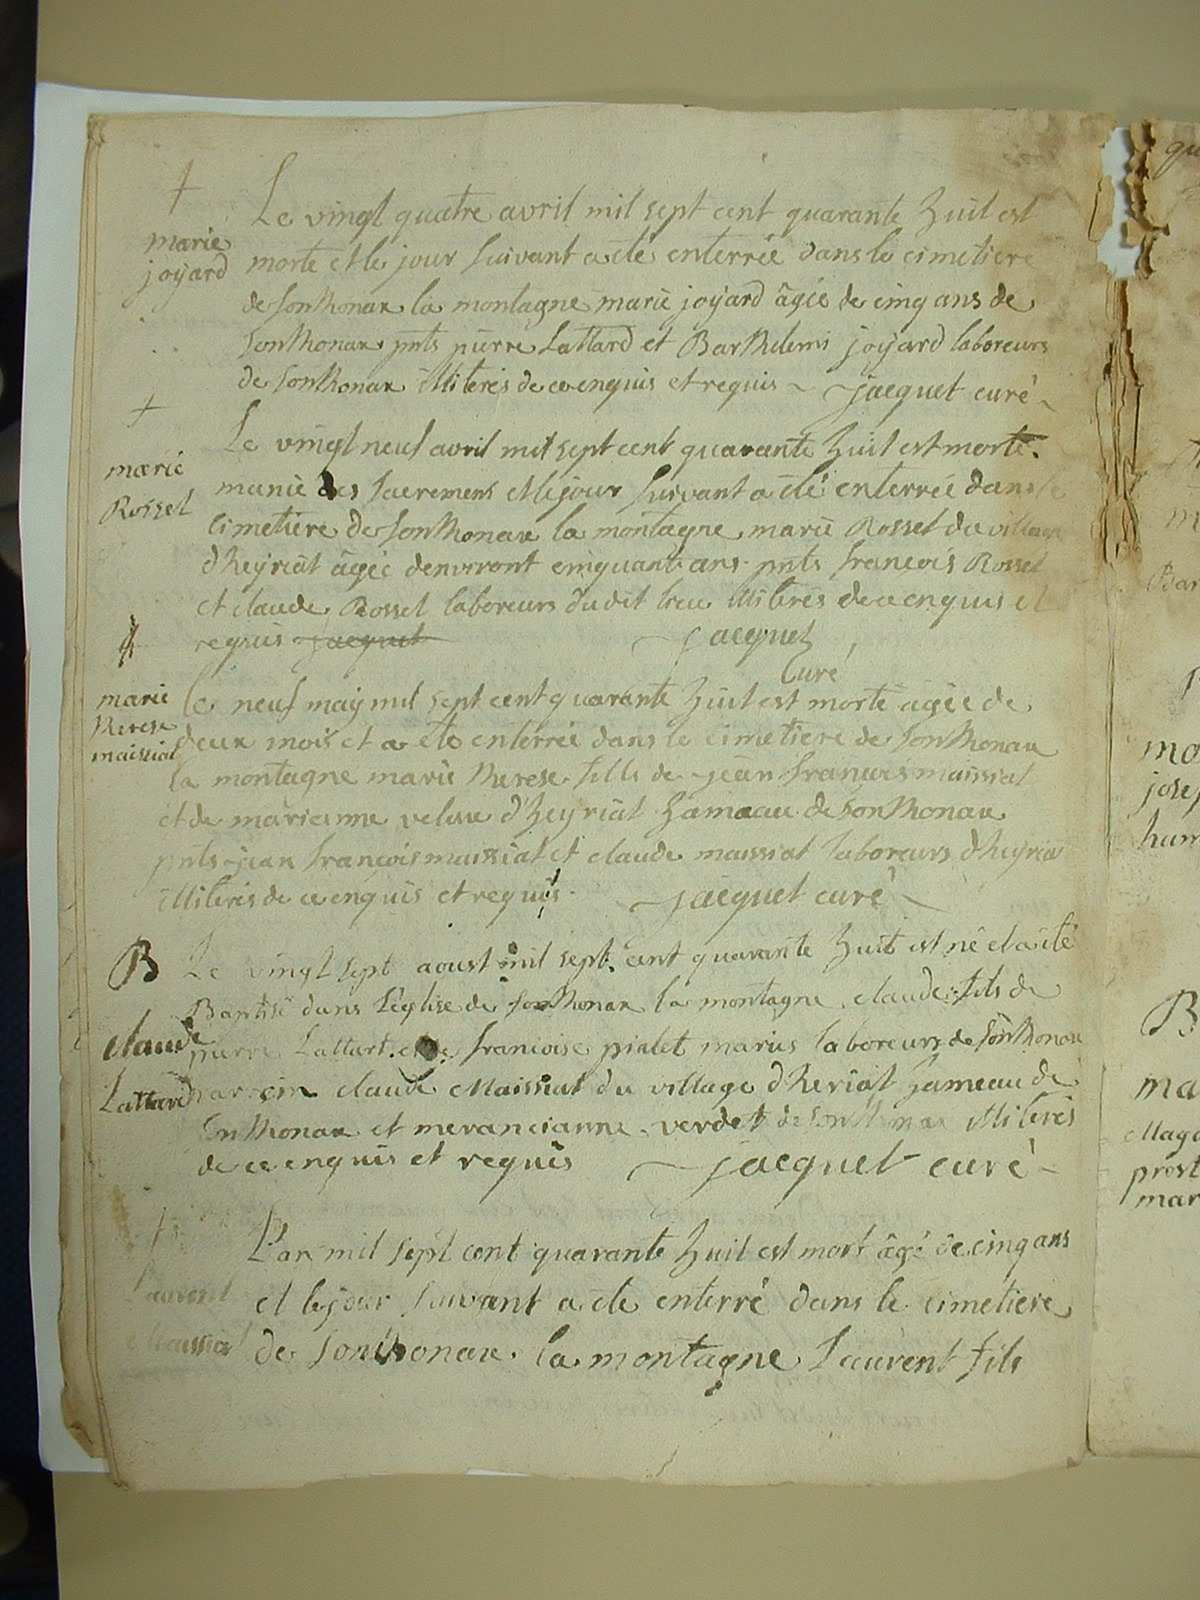 †
marie
joyard
Le vingt quatre avril mil sept cent quarante huit est
morte et le jour suivant a été enterrée dans le cimetiere
de Sonthonax la montagne marie joyard âgée de cinq ans de
Sonthonax pnts pierre Lattard et Barthelemi joyard laboreurs
de Sonthonax illiterés de ce enquis et requis jacquet curé
†
marie
Rosset
Le vingt neuf avril mil sept cent quarante huit est morte
munie des sacremens et le jour suivant a été enterrée dans le
cimetiere de Sonthonax la montagne marie Rosset du village
d'heyriat âgée denviront cinquante ans pnts francois Rosset
et claude Rosset laboreurs dudit lieu illiterés de ce enquis et
requis jacquet jacquet
curé
†
marie
therese
maissiat
le neuf may mil sept cent quarante huit est morte agée de
deux mois et a été enterrée dans le cimetiere de Sonthonax
la montagne marie therese fille de jean françois maissiat
et de marianne d'heyriat hameau de Sonthonax
pnts jean françois maissiat et claude maissiat laboreurs d'heyriat
illiterés de ce enquis et requis jacquet curé
B
claude
Lattard
Le vingt sept aoust mil sept cent quarante huit est né et a été
Baptisé dans l'église de Sonthonax la montagne claude fils de
pierre Lattart et de francoise pialet mariés laboreurs de Sonthonax
parrein claude Maissiat du village d'heriat hameau de
Sonthonax et verdet de Sonthonax illiterés
de ce enquis et requis jacquet curé
†
Laurent
Maissiat
L'an mil sept cent quarante huit est mort âgé de cinq ans
et le jour suivant a été enterré dans le cimetiere
de Sonthonax la montagne Laurent fils
B